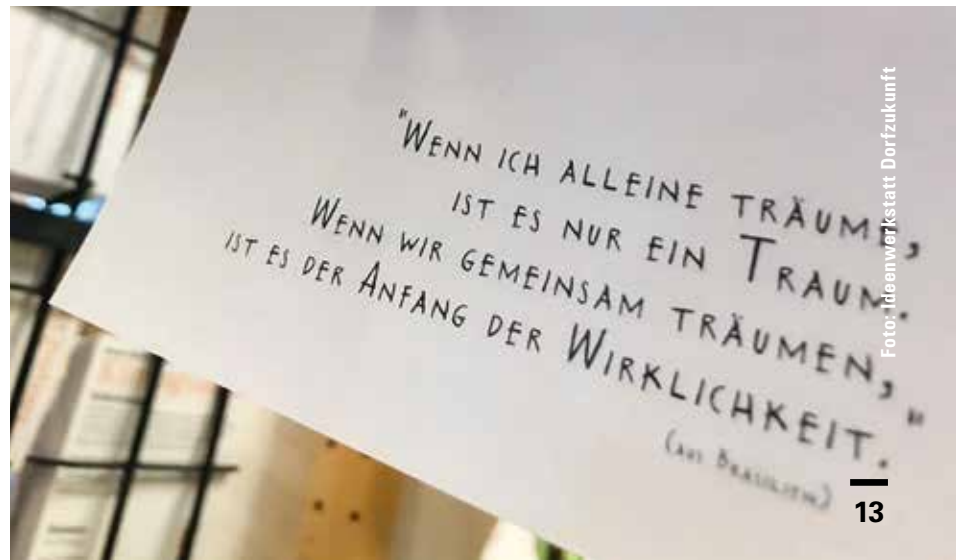 "Wenn ich alleine träume,
ist es nur ein Traum.
Wenn wir gemeinsam träumen,
ist es der Anfang der Wirklichkeit."
(aus Brasilien)
Foto: Ideenwerkstatt Dorfzukunft
13